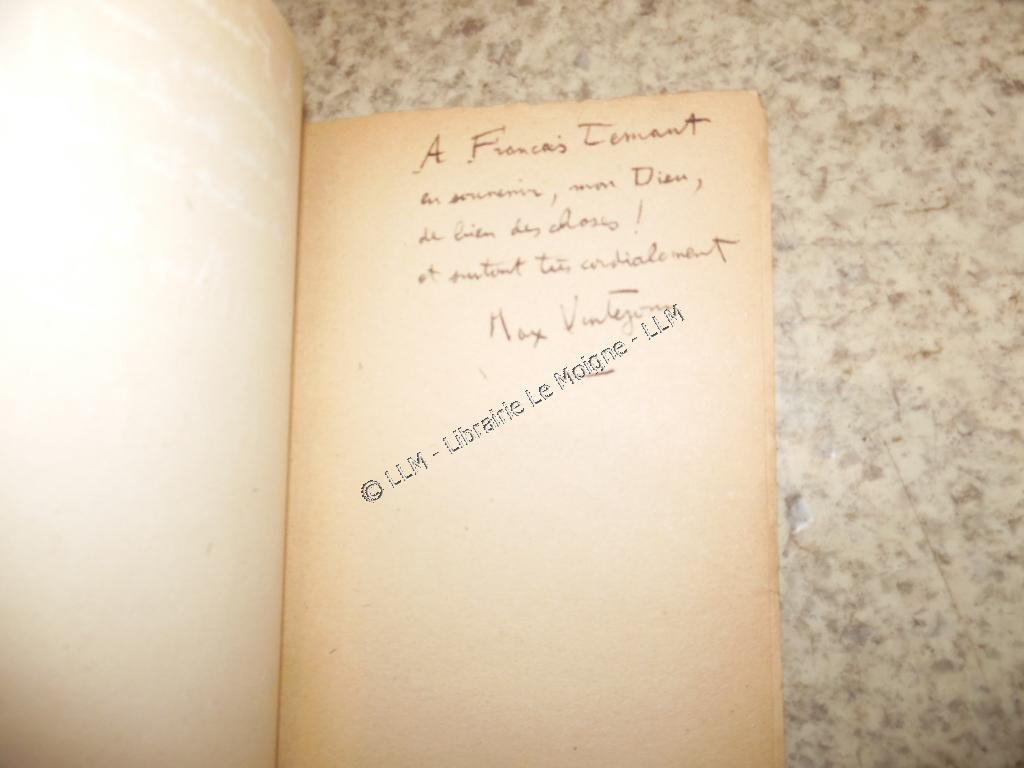 A Francais Temant
en souvenir, mon Dieu,
de bien des choses !
et surtout très cordialement
Max
© LLM - Librairie Le Moigne - LLM